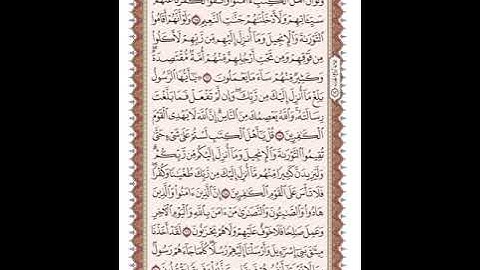 وَلَوْ أَنَّ أَهْلَ ٱلْكِتَٰبِ ءَامَنُوا۟ وَٱتَّقَوْا۟ لَكَفَّرْنَا عَنْهُمْ
سَيِّـَٔاتِهِمْ وَلَأَدْخَلْنَٰهُمْ جَنَّٰتِ ٱلنَّعِيمِ ۝ وَلَوْ أَنَّهُمْ أَقَامُوا۟
ٱلتَّوْرَىٰةَ وَٱلْإِنجِيلَ وَمَآ أُنزِلَ إِلَيْهِم مِّن رَّبِّهِمْ لَأَكَلُوا۟
مِن فَوْقِهِمْ وَمِن تَحْتِ أَرْجُلِهِم مِّنْهُمْ أُمَّةٌ مُّقْتَصِدَةٌ
وَكَثِيرٌ مِّنْهُمْ سَآءَ مَا يَعْمَلُونَ ۝ يَٰٓأَيُّهَا ٱلرَّسُولُ
بَلِّغْ مَآ أُنزِلَ إِلَيْكَ مِن رَّبِّكَ وَإِن لَّمْ تَفْعَلْ فَمَا بَلَّغْتَ
رِسَالَتَهُۥ وَٱللَّهُ يَعْصِمُكَ مِنَ ٱلنَّاسِ إِنَّ ٱللَّهَ لَا يَهْدِى ٱلْقَوْمَ
ٱلْكَٰفِرِينَ ۝ قُلْ يَٰٓأَهْلَ ٱلْكِتَٰبِ لَسْتُمْ عَلَىٰ شَىْءٍ حَتَّىٰ
تُقِيمُوا۟ ٱلتَّوْرَىٰةَ وَٱلْإِنجِيلَ وَمَآ أُنزِلَ إِلَيْكُم مِّن رَّبِّكُمْ
وَلَيَزِيدَنَّ كَثِيرًا مِّنْهُم مَّآ أُنزِلَ إِلَيْكَ مِن رَّبِّكَ طُغْيَٰنًا وَكُفْرًا
فَلَا تَأْسَ عَلَى ٱلْقَوْمِ ٱلْكَٰفِرِينَ ۝ إِنَّ ٱلَّذِينَ ءَامَنُوا۟ وَٱلَّذِينَ
هَادُوا۟ وَٱلصَّٰبِـُٔونَ وَٱلنَّصَٰرَىٰ مَنْ ءَامَنَ بِٱللَّهِ وَٱلْيَوْمِ ٱلْـَٔاخِرِ
وَعَمِلَ صَٰلِحًا فَلَا خَوْفٌ عَلَيْهِمْ وَلَا هُمْ يَحْزَنُونَ ۝ لَقَدْ أَخَذْنَا
مِيثَٰقَ بَنِىٓ إِسْرَٰٓءِيلَ وَأَرْسَلْنَآ إِلَيْهِمْ رُسُلًا كُلَّمَا جَآءَهُمْ رَسُولٌۢ